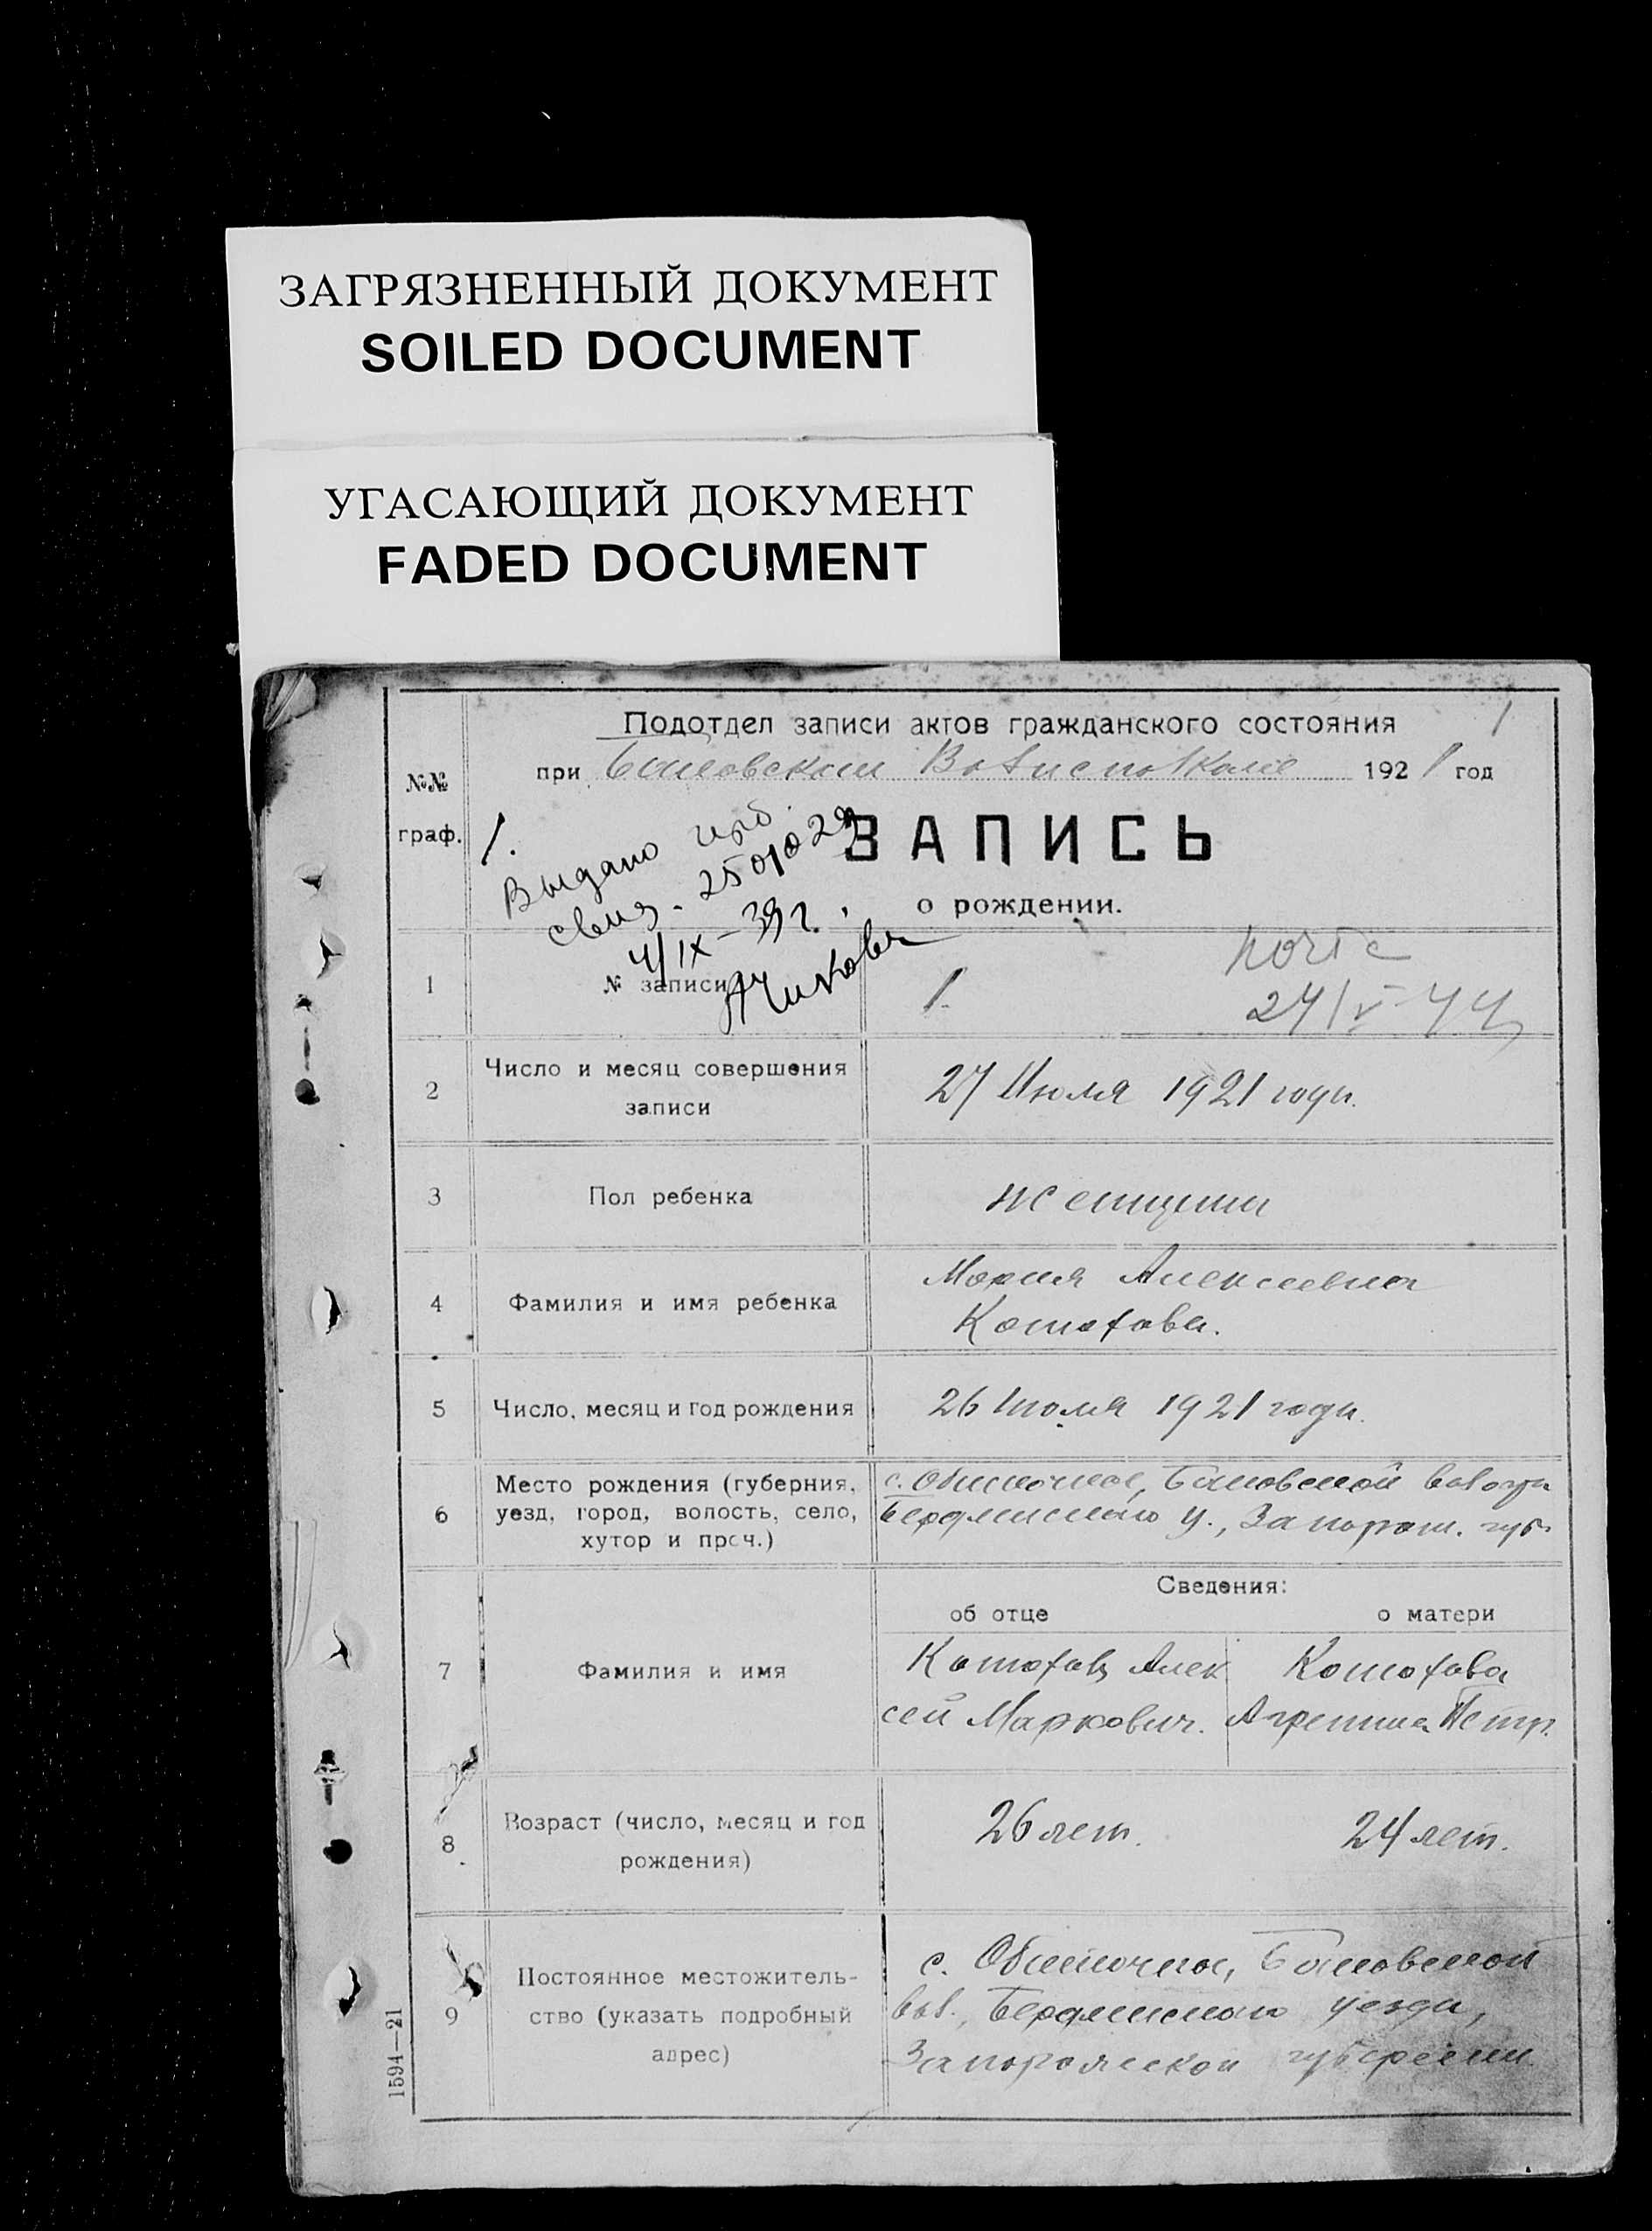 ЗАГРЯЗНЕННЫЙ ДОКУМЕНТ
SOILED DOCUMENT
УГАСАЮЩИЙ ДОКУМЕНТ
FADED DOCUMENT
1
Подотдел записи актов гражданского состояния
при 1921 год
№№ граф.
1.
Выдано
4/IX-39 г.
ЗАПИСЬ
о рождении.
1 № записи 1.
24/V-44
2 Число и месяц совершения
записи
27 Июля 1921 года.
3 Пол ребенка женщина
4 Фамилия и имя ребенка
Мария Алексеевна
5 Число, месяц и год рождения 26 Июля 1921 года.
6 Место рождения (губерния,
уезд, город, волость, село,
хутор и проч.)
с. Обиточное,
Бердянского у., Запорож. губ.
Сведения:
об отце о матери
7 Фамилия и имя
Алек
сей Маркович. Петр.
8 Возраст (число, месяц и год
рождения)
26 лет. 24 лет.
9 Постоянное местожитель-
ство (указать подробный
адрес)
с. Обиточное,
вол., Бердянского уезда,
Запорожской губернии
1594—21